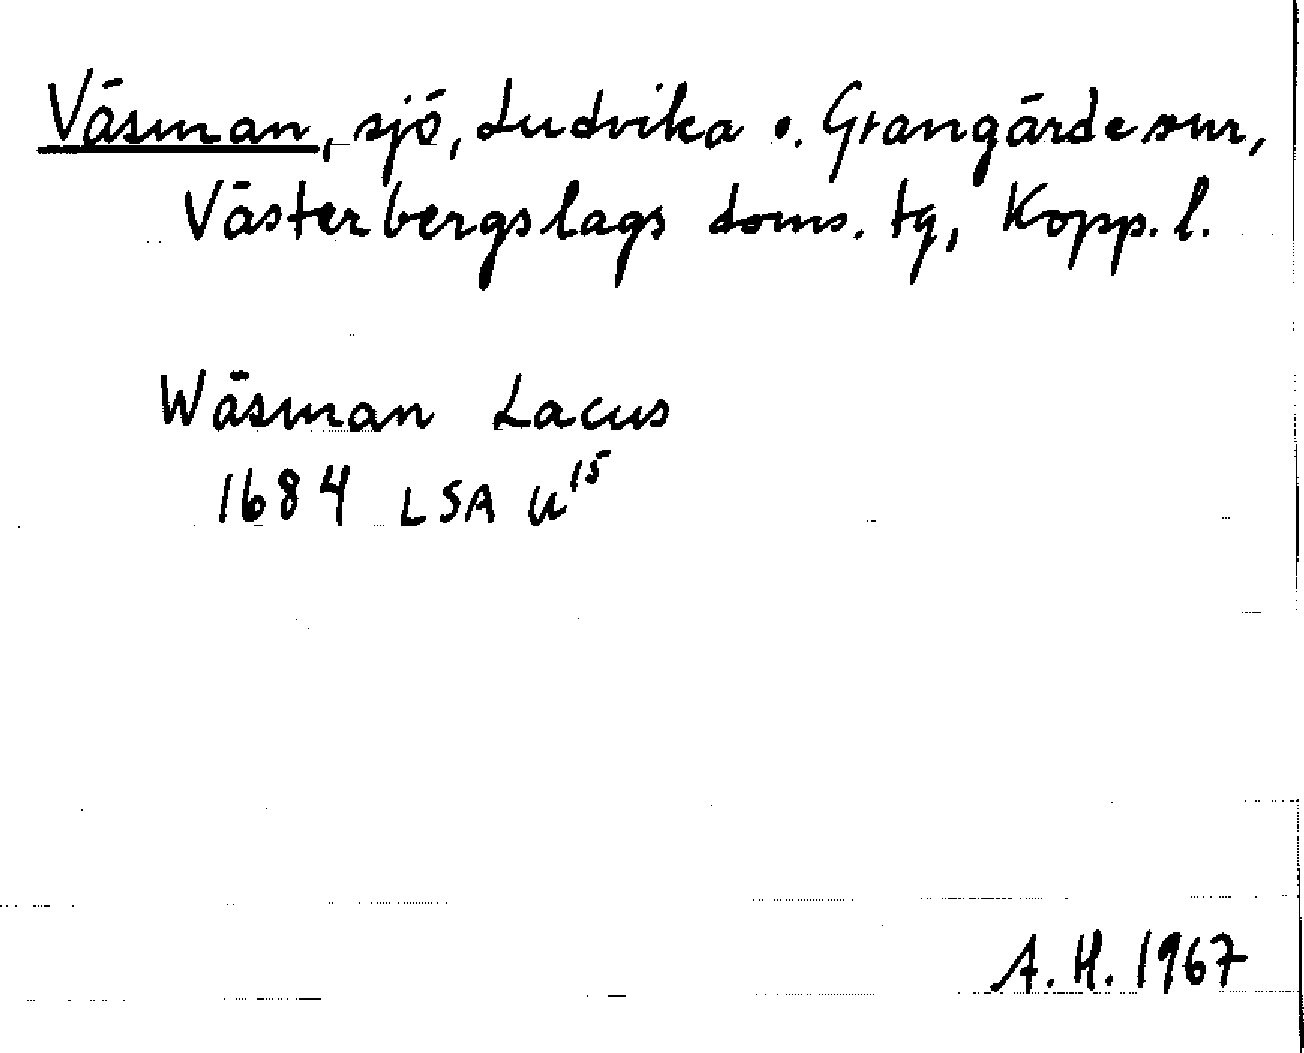 Väsman, sjö, Ludvika o. Grangärde snr,
Västerbergslags doms. tg, Kopp. l.
Wäsman Lacus
1684 LSA U15
A. H. 1967